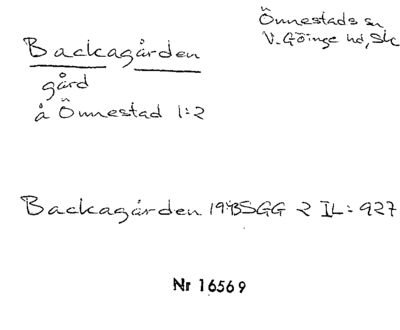 Backagården
Önnestads sn
V. Göinge hd, Sk
gård
å Önnestad 1:2
Backagården SGG 2 II: 927
Nr 16569